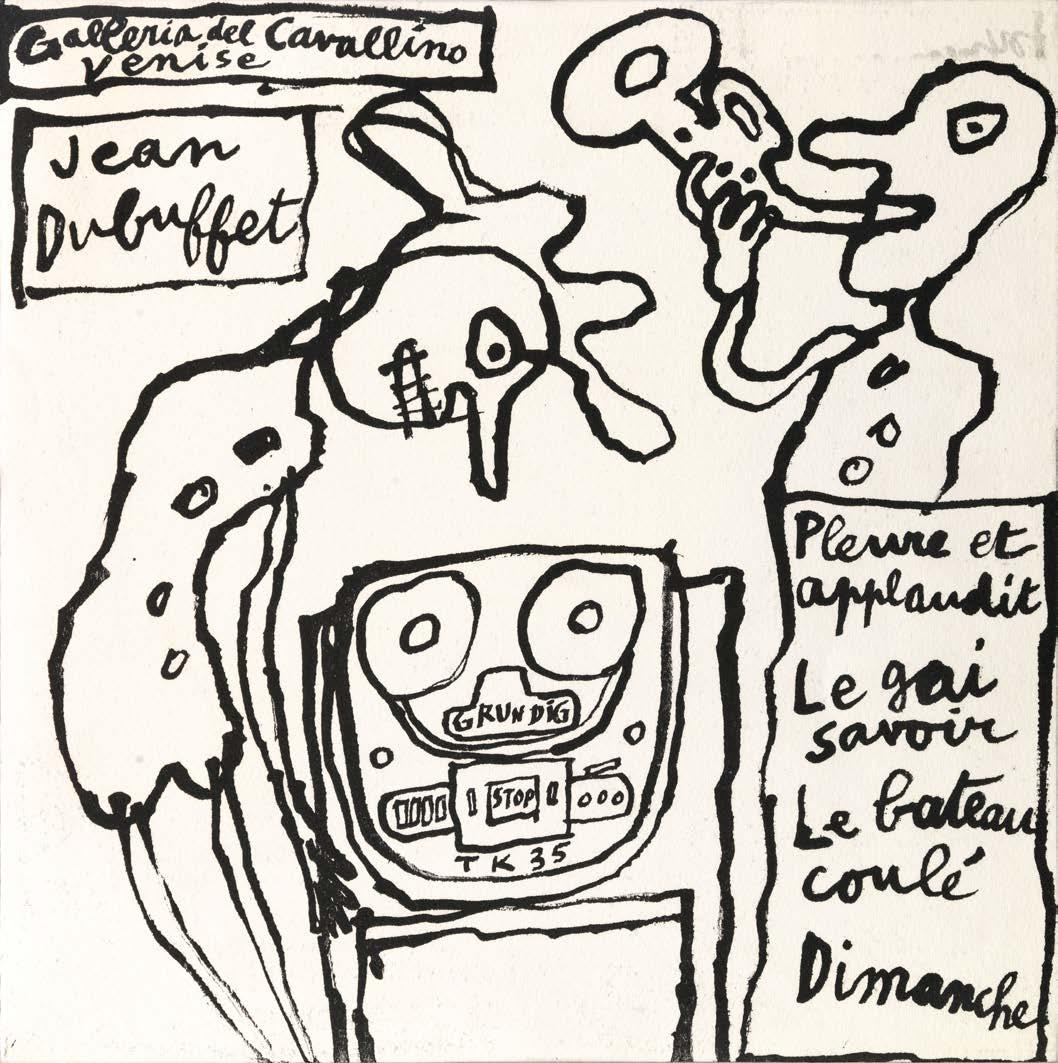 Galleria del Cavallino
Venise
Jean
Dubuffet
GRUNDIG
STOP
TK 35
Pleure et
applaudit
Le gai
savoir
Le bateau
coulé
Dimanche